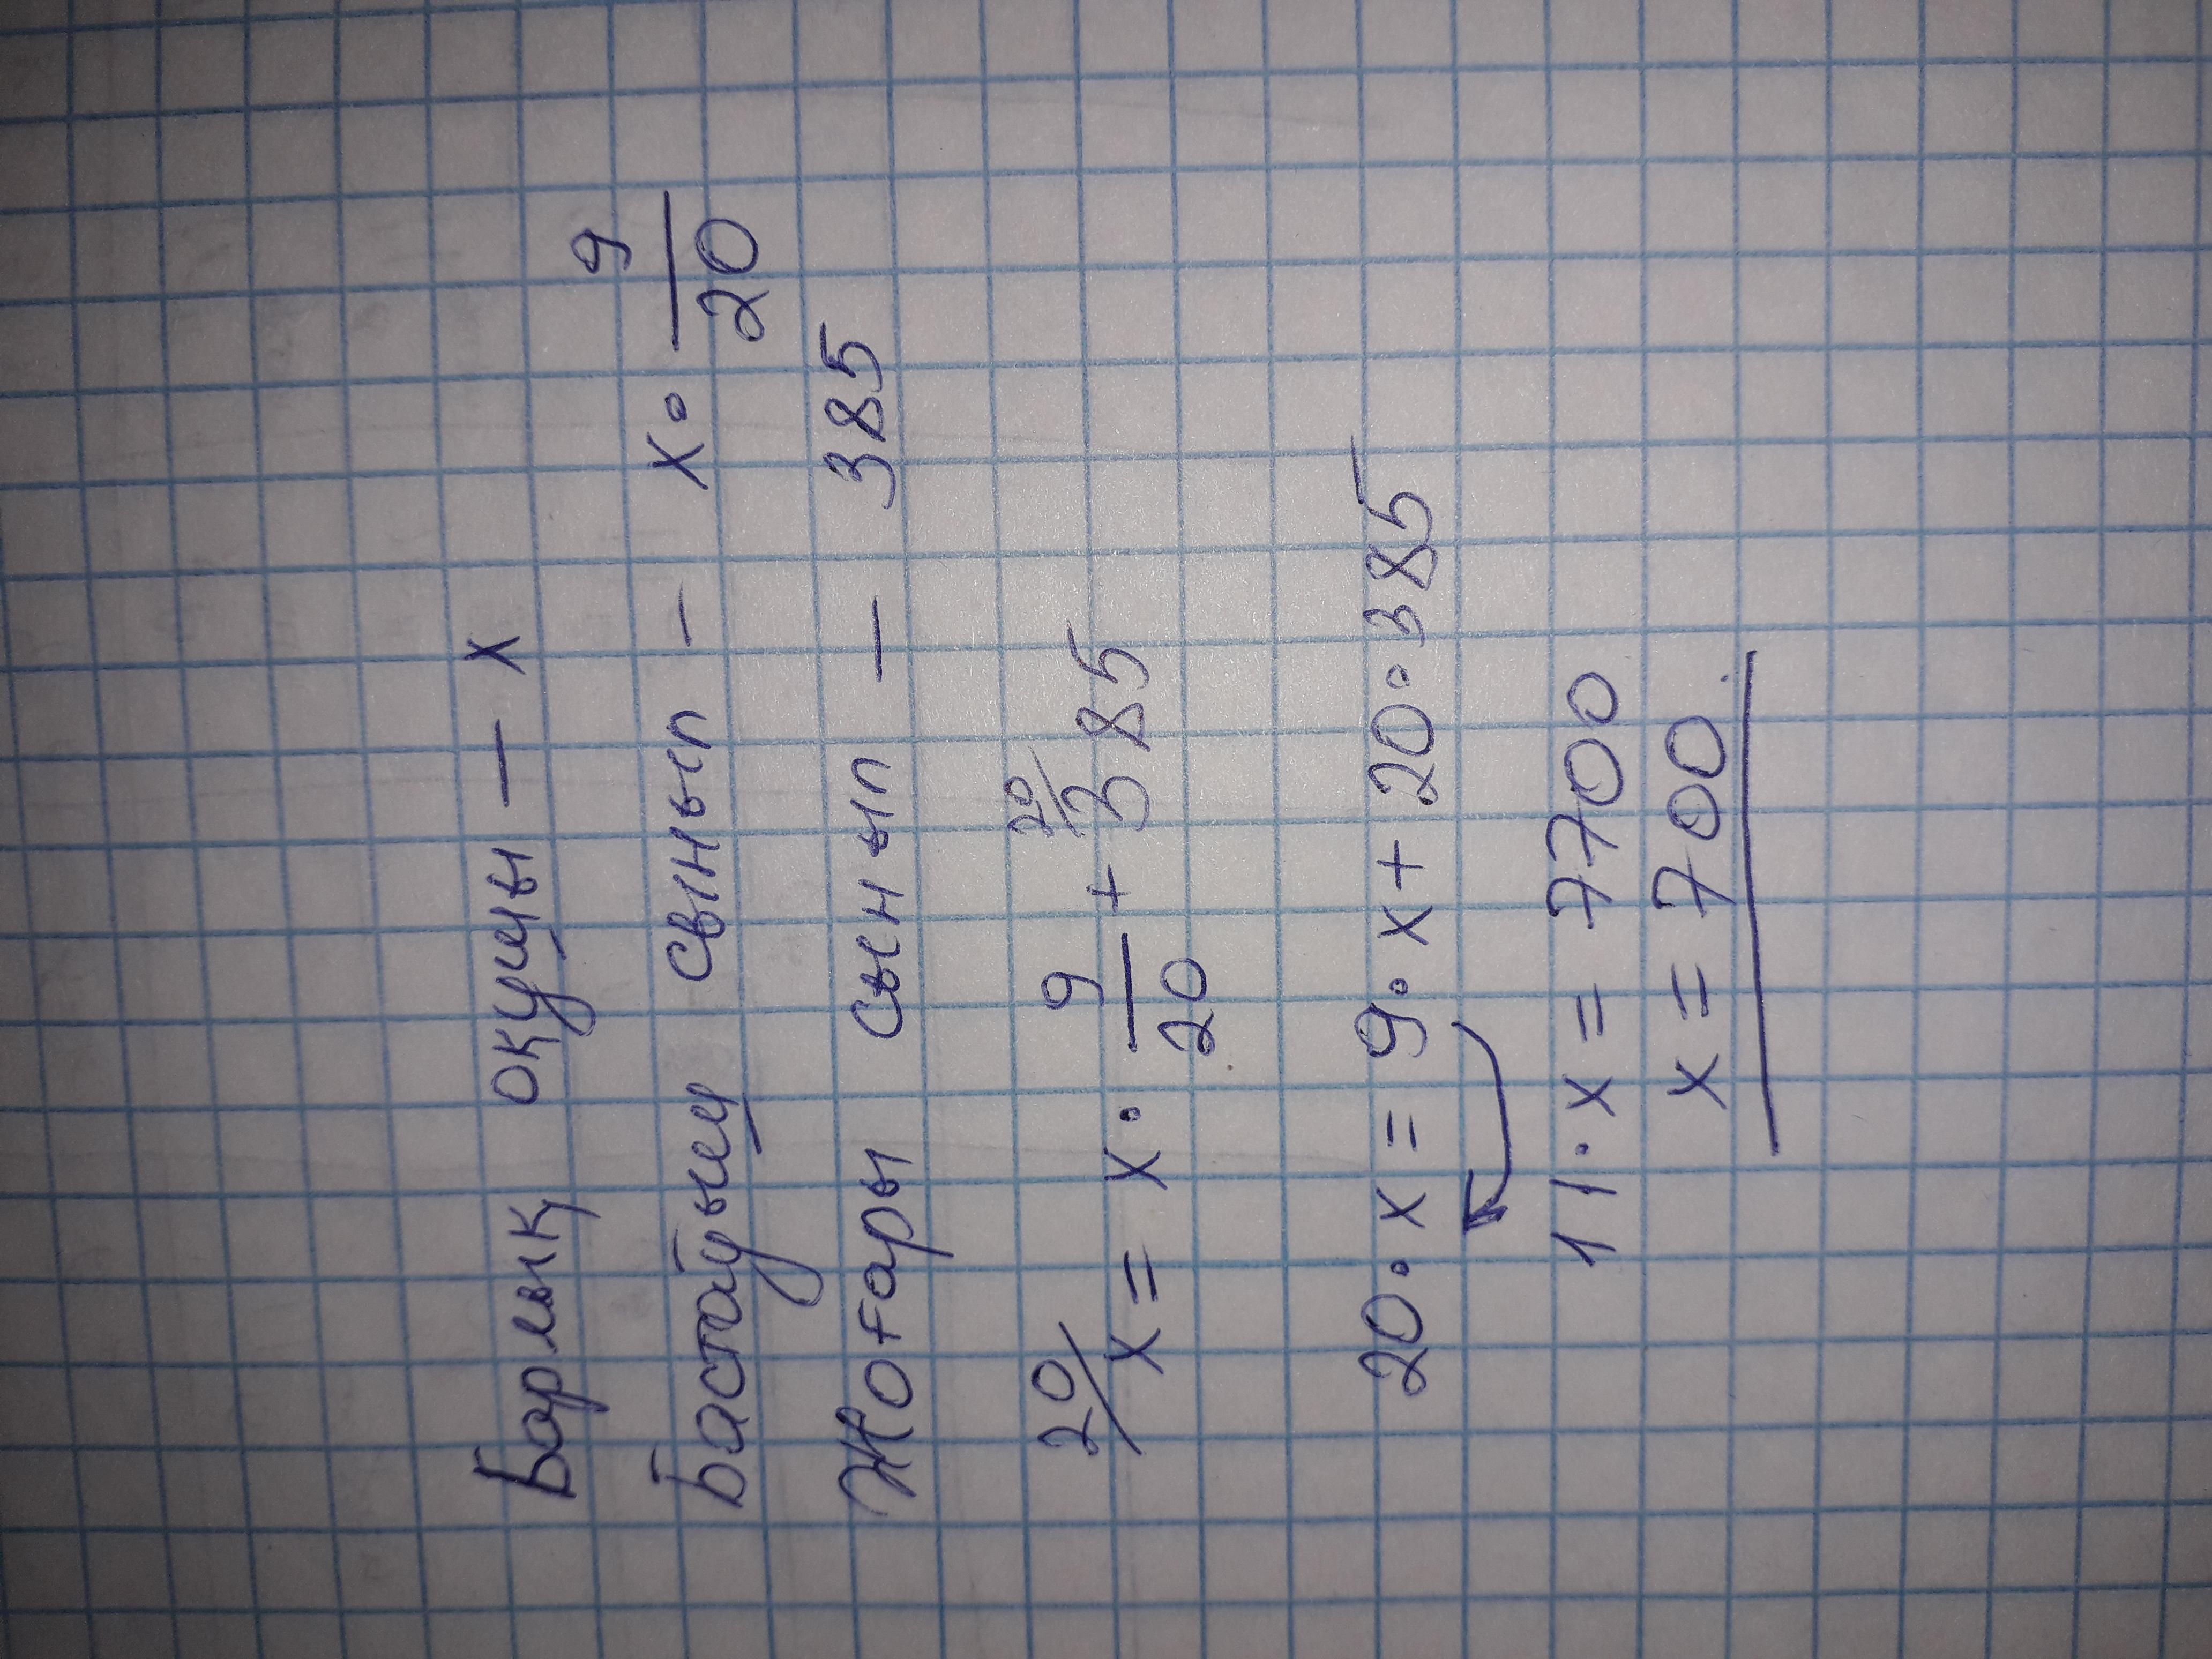 Барлық окушы – х
Бастауыш сынып – х · 9/20
Жоғары сынып – 385
20/ х = х · 9/20 + 20/ 385
20 · х = 9 · х + 20 · 385
11 · х = 7700
х = 700